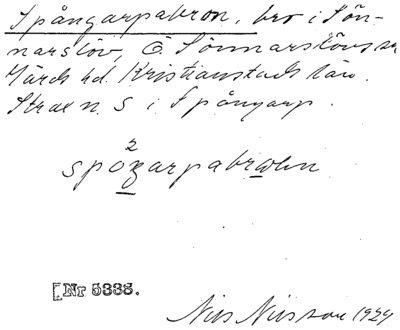 Spångarpabron, bro i Sön-
narslöv, Ö. Sönnarslövs sn
Gärds hd. Kristianstads län.
Strax n. S i Spångarp.
2
spoŋarpabrωən
[Nr 5335.
Nils Nilsson 1929